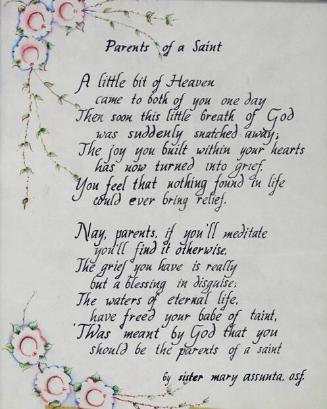 Parents of a Saint
A little bit of Heaven
came to both of you one day
Then soon this little breath of God
was suddenly snatched away;
The joy you built within your hearts
has now turned into grief.
You feel that nothing found in life
could ever bring relief.
Nay, parents, if you'll meditate
you'll find it otherwise.
The grief you have is really
but a blessing in disguise;
The waters of eternal life,
have freed your babe of taint,
'Twas meant by God that you
should be the parents of a saint
by sister mary assunta, osf.